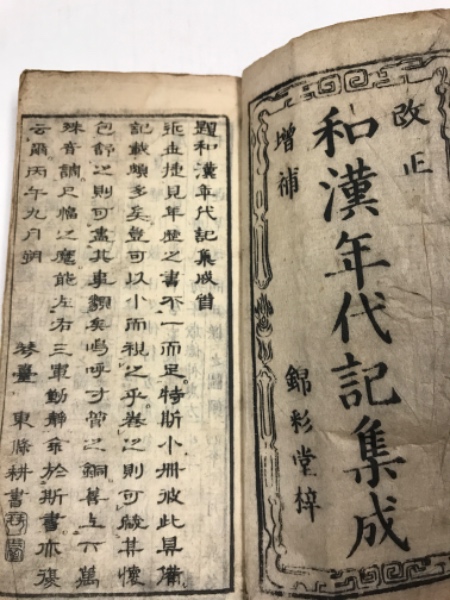 改正
増補
和漢年代記集成
錦彩堂梓
題和漢年代記集成首
世捷見年歴之書不一而足特斯小冊彼此具備
記載多矣豈可以小而視之乎卷之則可其懐
包舒之則可盡其事類矣嗚呼寸管之銅善六萬
殊音尺幅之麾能左右三軍動靜於斯書亦復
云爾丙午九月朔
琴臺 東條耕書